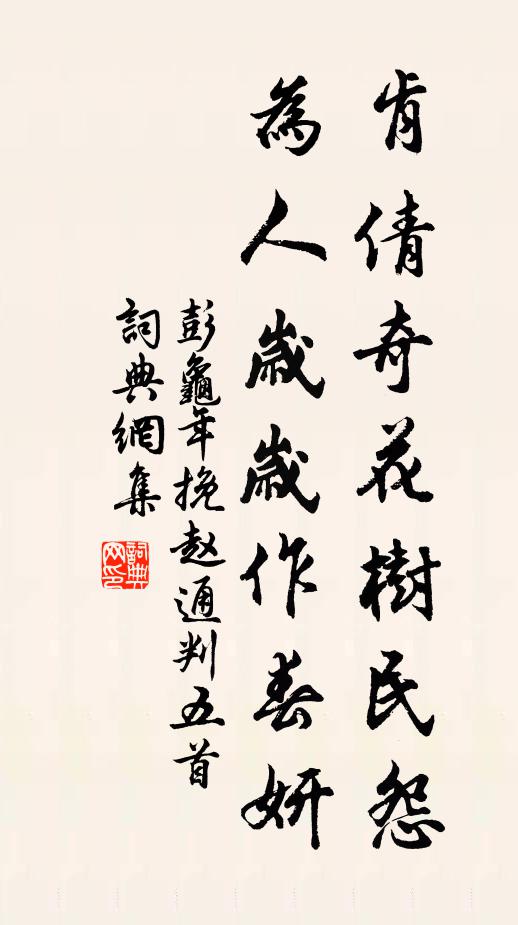 肯倩奇花樹民怨
為人歲歲作春妍
彭龜年挽赵通判五首
詞典網集
詞典網印